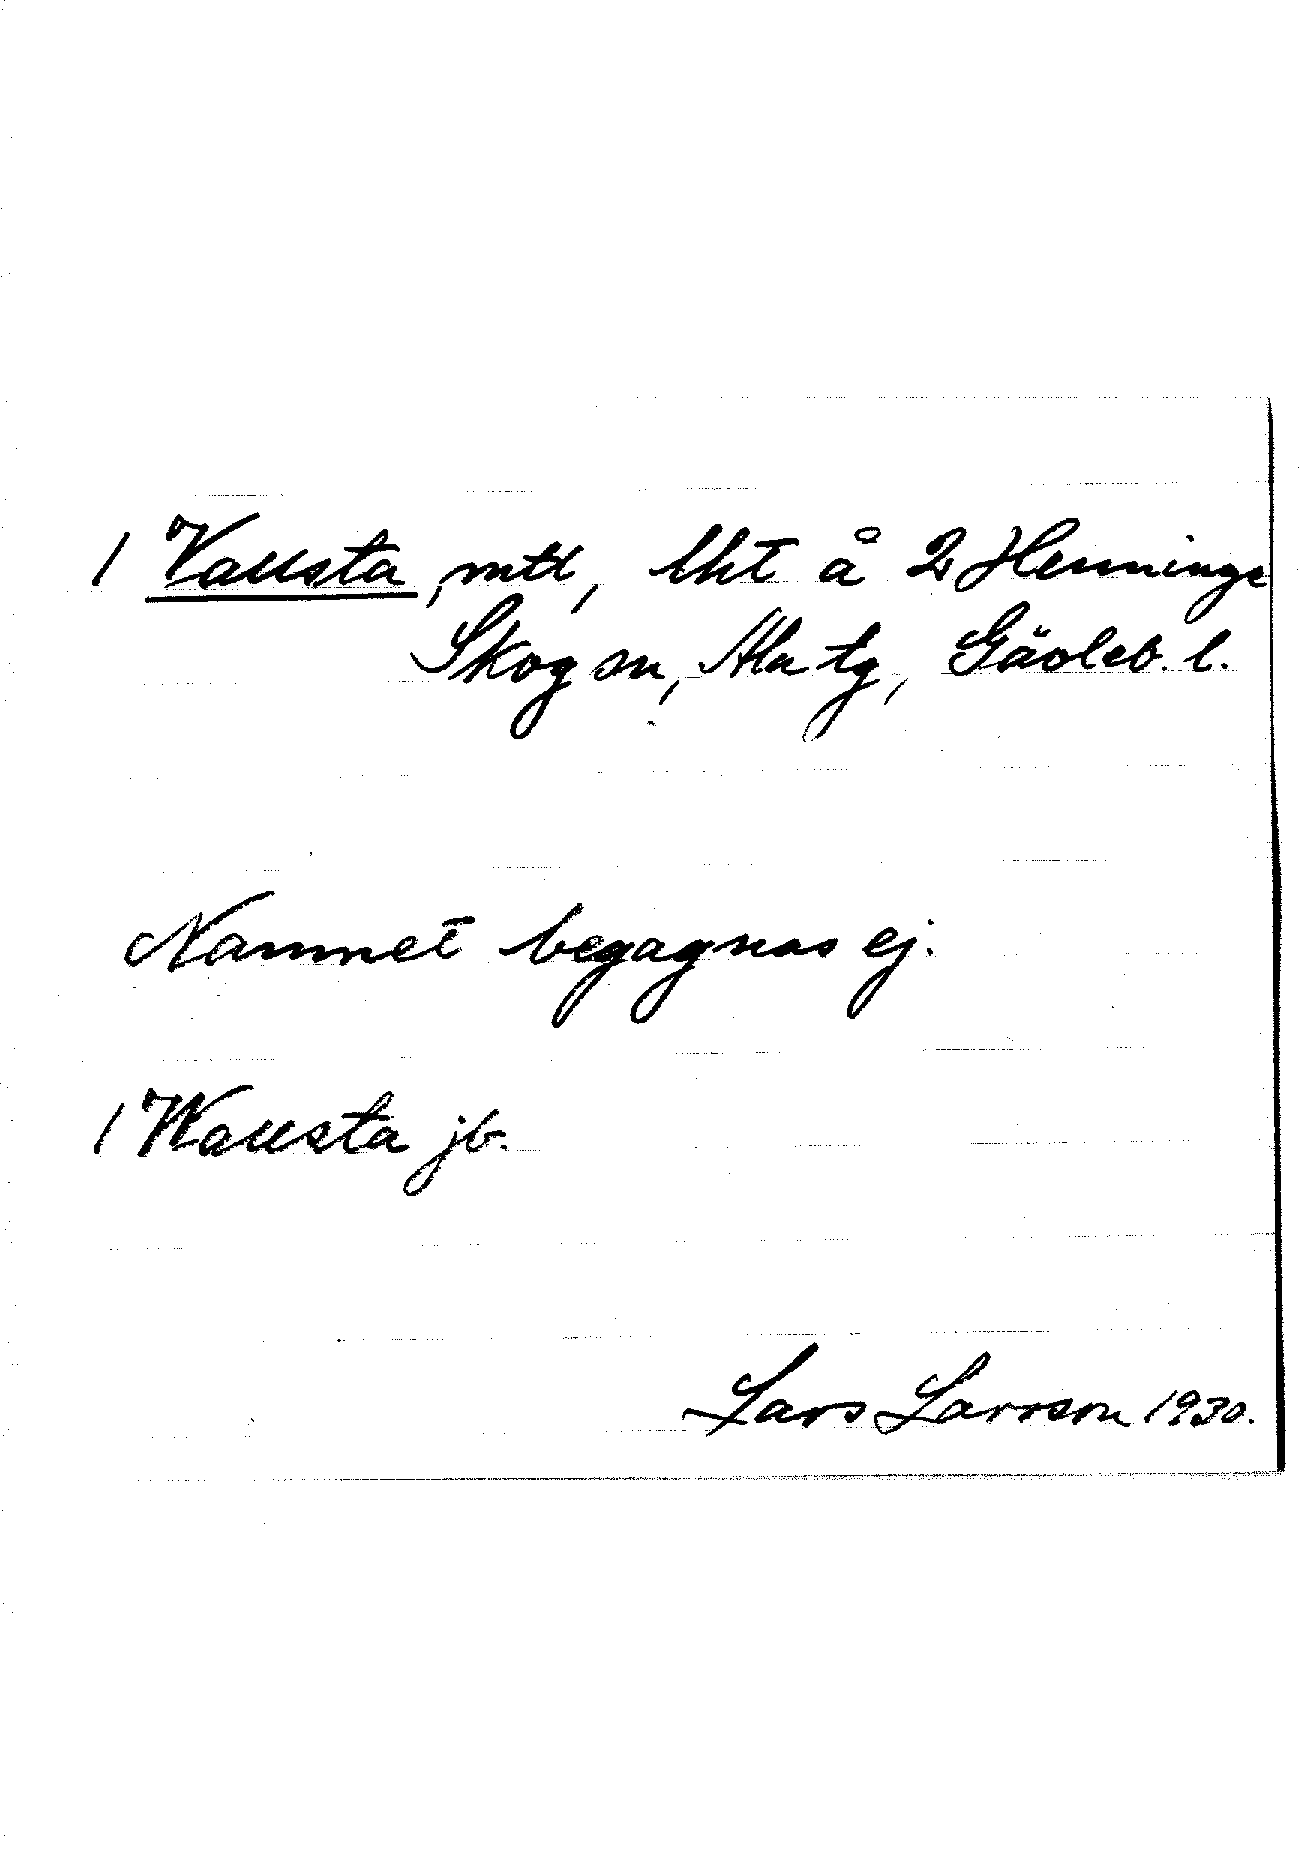 1 Vallsta, mtl, lht å 2 Henninge
Skog sn, Ala tg, Gävleb. l.
Namnet begagnas ej.
1 Wallsta jb.
Lars Larsson 1930.